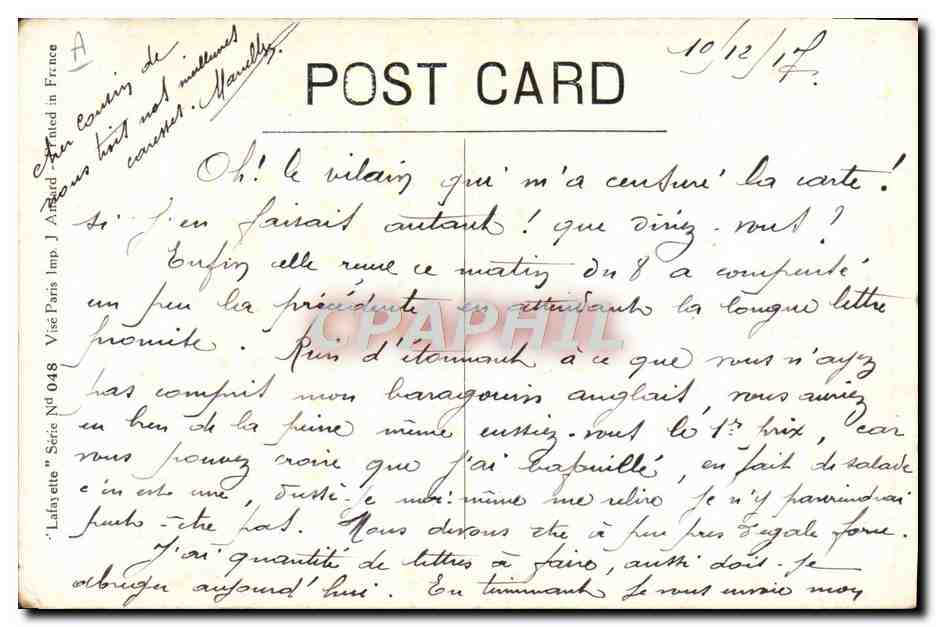 A
Cher cousin de
nous trois nos meilleures
caresses. Marcelle.
10/12/17.
POST CARD
Oh! le vilain qui m'a censuré la carte!
si j'en faisais autant! que diriez-vous?
Enfin celle reçue ce matin du 8 a compensé
un peu la précédente en attendant la longue lettre
promise. Rien d'étonnant à ce que vous n'ayez
pas compris mon baragouin anglais, vous auriez
eu bien de la peine même eussiez-vous le 1er prix, car
vous pouvez croire que j'ai bafouillé, en fait de salade
c'en est une, dussé-je moi-même me relire je n'y parviendrai
peut-être pas. Nous devons être à peu près d'égale force.
J'ai quantité de lettres à faire, aussi dois-je
abréger aujourd'hui. En terminant je vous envoie mon
"Lafayette" Série Nd 048 Visé Paris Imp. J Printed in France
CPAPHIL